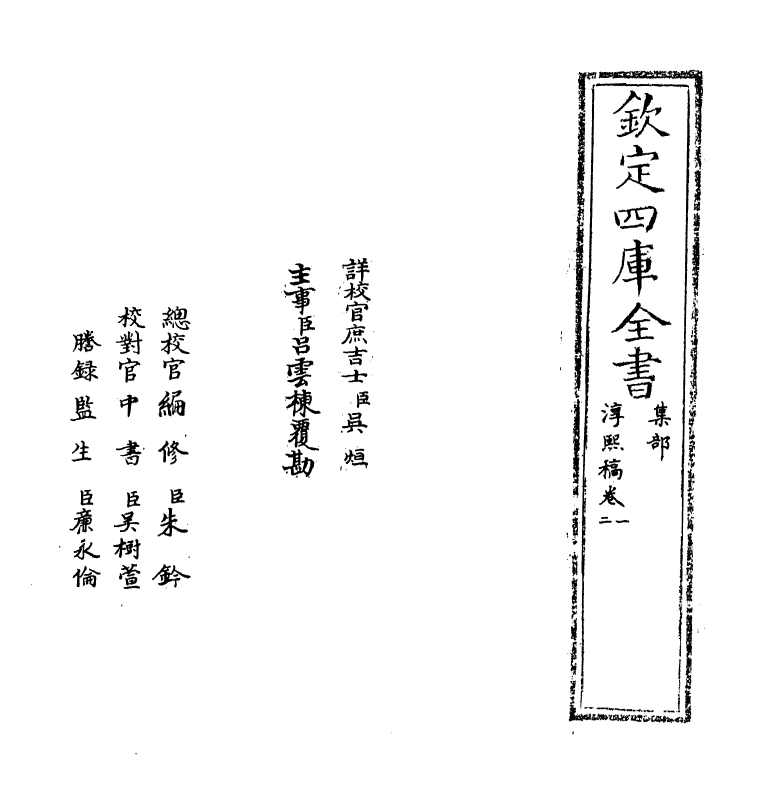 欽定四庫全書
集部
淳熙稿卷一二
詳校官庶吉士臣吳烜
主事臣呂雲棟覆勘
總校官編修臣朱鈐
校對官中書臣吳樹萱
謄錄監生臣廉永倫